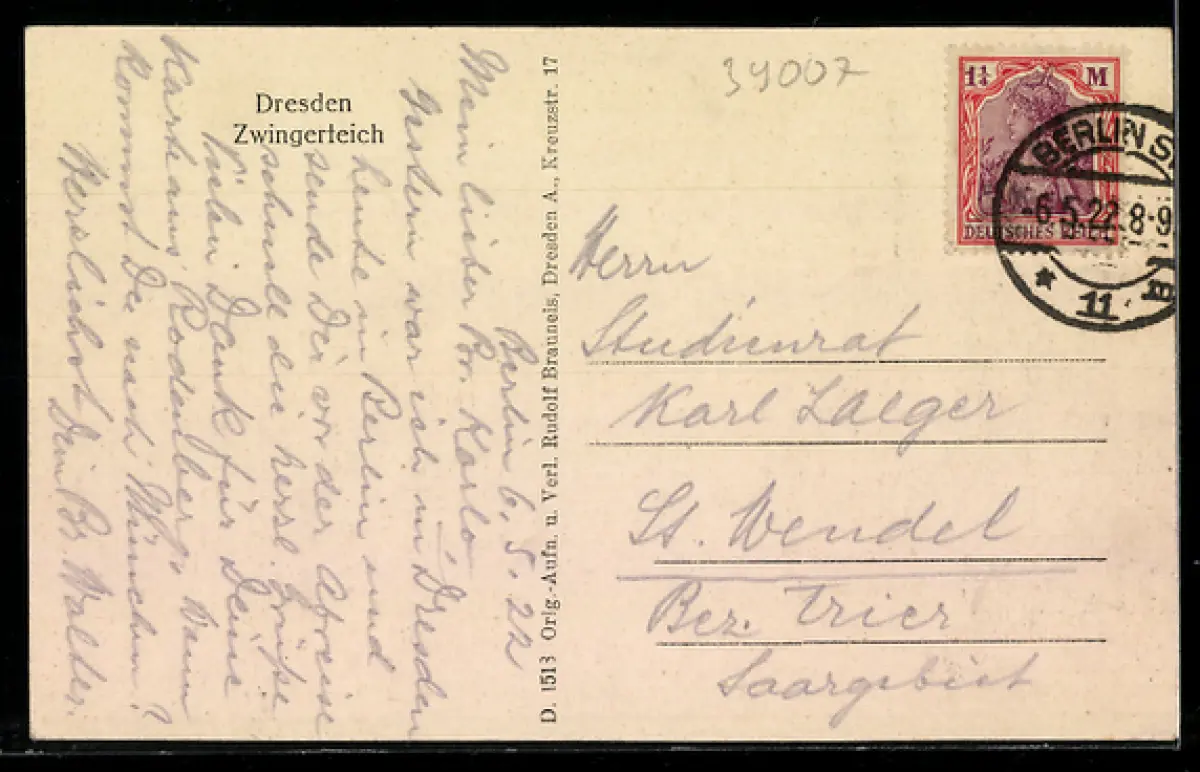 Dresden
Zwingerteich
Berlin 6. 5. 22
Mein lieber Br. Karlo,
Gestern war ich in Dresden
heute in Berlin und
sende Dir vor der Abreise
schnell die herzl. Grüße
Vielen Dank für Deine
Karte aus Rodenberg. Wann
kommst Du nach München?
Herzlichst Dein Br. Walter.
D. 1513 Orig.-Aufn. u. Verl. Rudolf Brauneis, Dresden A., Kreuzstr. 17
39007
1¼ M
DEUTSCHES REICH
BERLIN S
-6.5.22. 8-9
* 11
Herrn
Studienrat
Karl Laeger
St. Wendel
Bez. Trier
Saargebiet